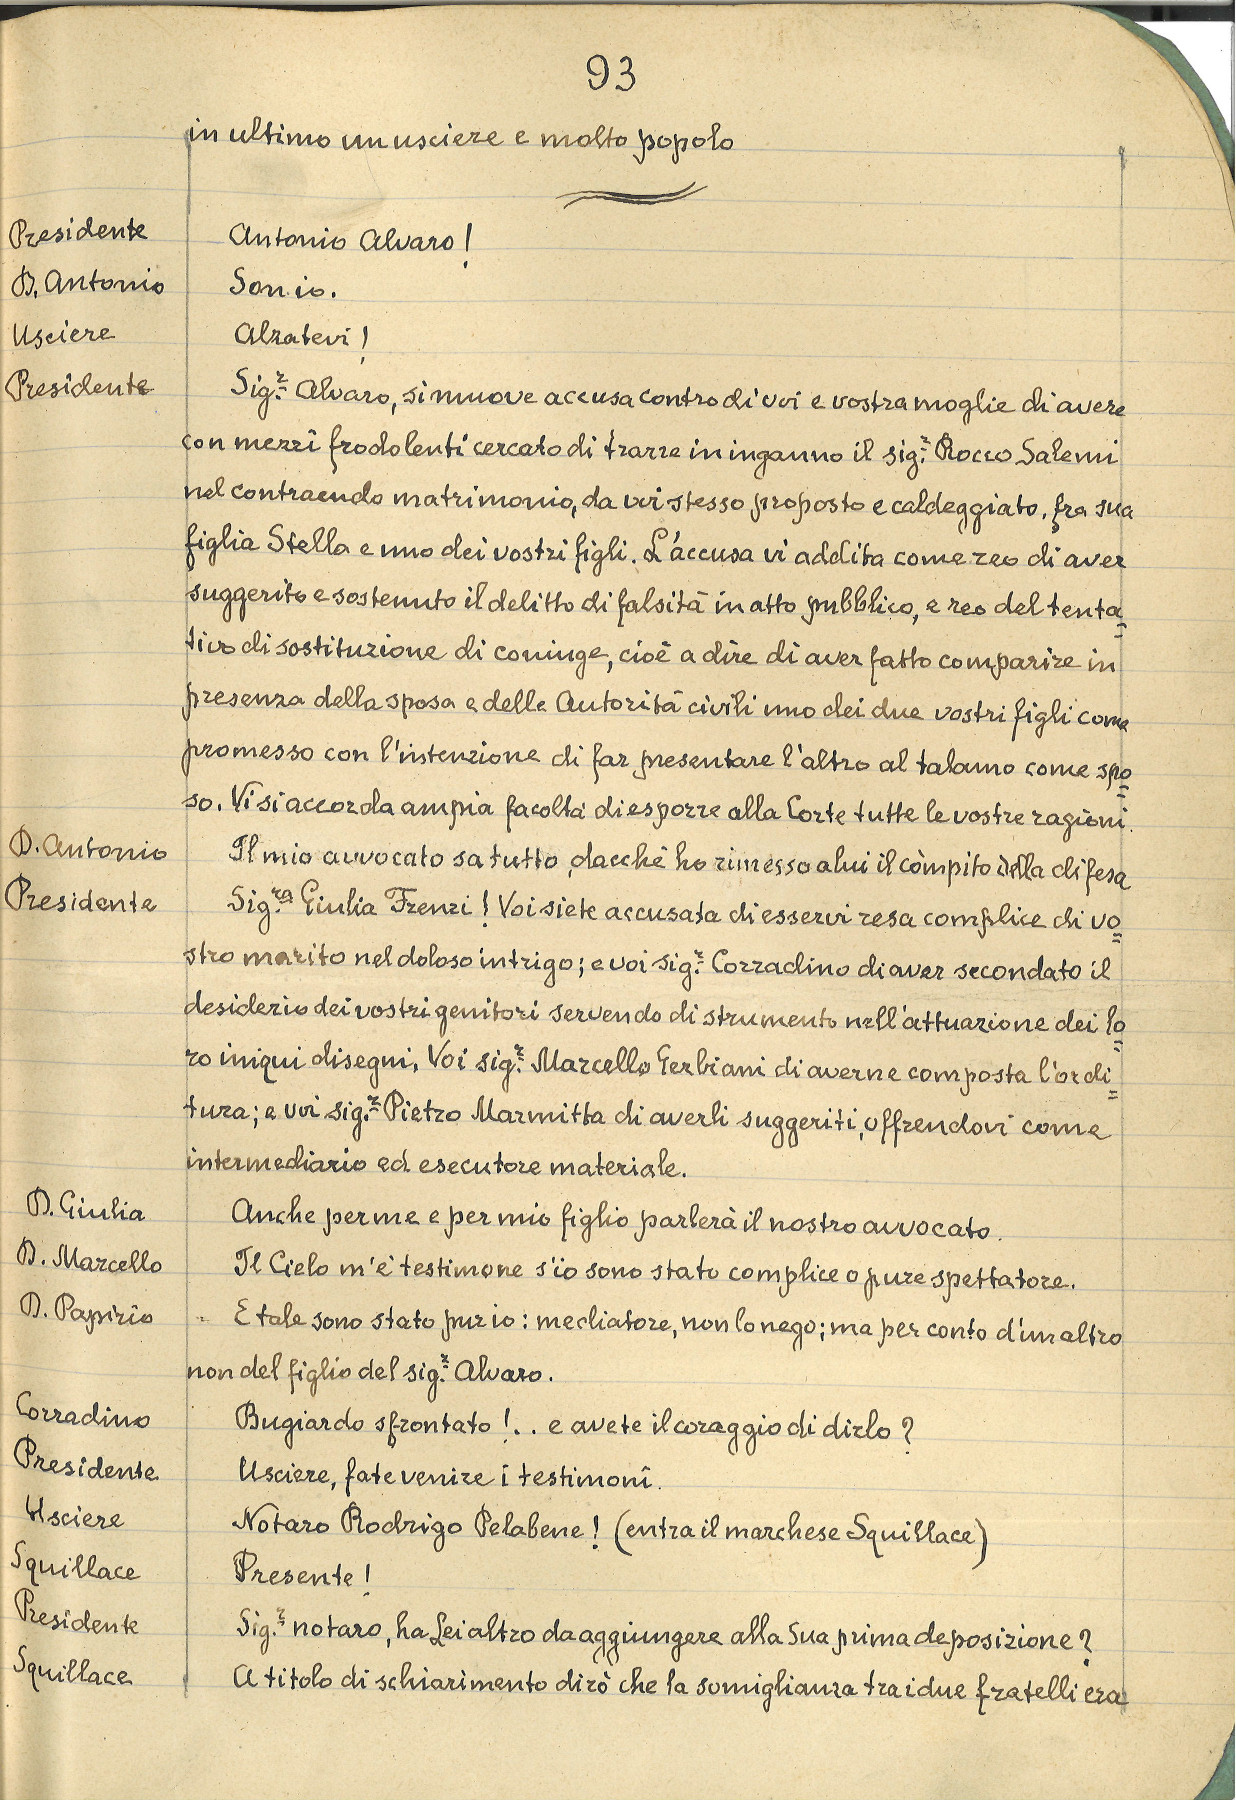 93
in ultimo un usciere e molto popolo
Presidente Antonio Alvaro!
D. Antonio Son io.
Usciere Alzatevi!
Presidente Sig.r Alvaro, si muove accusa contro di voi e vostra moglie di avere
con mezzi frodolenti cercato di trarre in inganno il sig.r Rocco Salemi
nel contraendo matrimonio, da voi stesso proposto e caldeggiato, fra sua
figlia Stella e uno dei vostri figli. L'accusa vi addita come reo di aver
suggerito e sostenuto il delitto di falsità in atto pubblico, e reo del tenta=
tivo di sostituzione di coniuge, cioè a dire di aver fatto comparire in
presenza della sposa e delle Autorità civili uno dei due vostri figli come
promesso con l'intenzione di far presentare l'altro al talamo come spo=
so. Vi si accorda ampia facoltà di esporre alla Corte tutte le vostre ragioni.
D. Antonio Il mio avvocato sa tutto, dacchè ho rimesso a lui il còmpito della difesa
Presidente Sig.ra Giulia Frenzi! Voi siete accusata di esservi resa complice di vo=
stro marito nel doloso intrigo; e voi sig.r Corradino di aver secondato il
desiderio dei vostri genitori servendo di strumento nell'attuazione dei lo=
ro iniqui disegni, Voi sig.r Marcello Gerbiani di averne composta l'ordi=
tura; e voi sig.r Pietro Marmitta di averli suggeriti, offrendovi come
intermediario ed esecutore materiale.
D. Giulia Anche per me e per mio figlio parlerà il nostro avvocato.
D. Marcello Il Cielo m'è testimone s'io sono stato complice o pure spettatore.
D. Papirio E tale sono stato pur io: mediatore, non lo nego; ma per conto d'un altro
non del figlio del sig.r Alvaro.
Corradino Bugiardo sfrontato!.. e avete il coraggio di dirlo?
Presidente Usciere, fate venire i testimoni.
Usciere Notaro Rodrigo Pelabene! (entra il marchese Squillace)
Squillace Presente!
Presidente Sig.r notaro, ha Lei altro da aggiungere alla Sua prima deposizione?
Squillace A titolo di schiarimento dirò che la somiglianza tra i due fratelli era